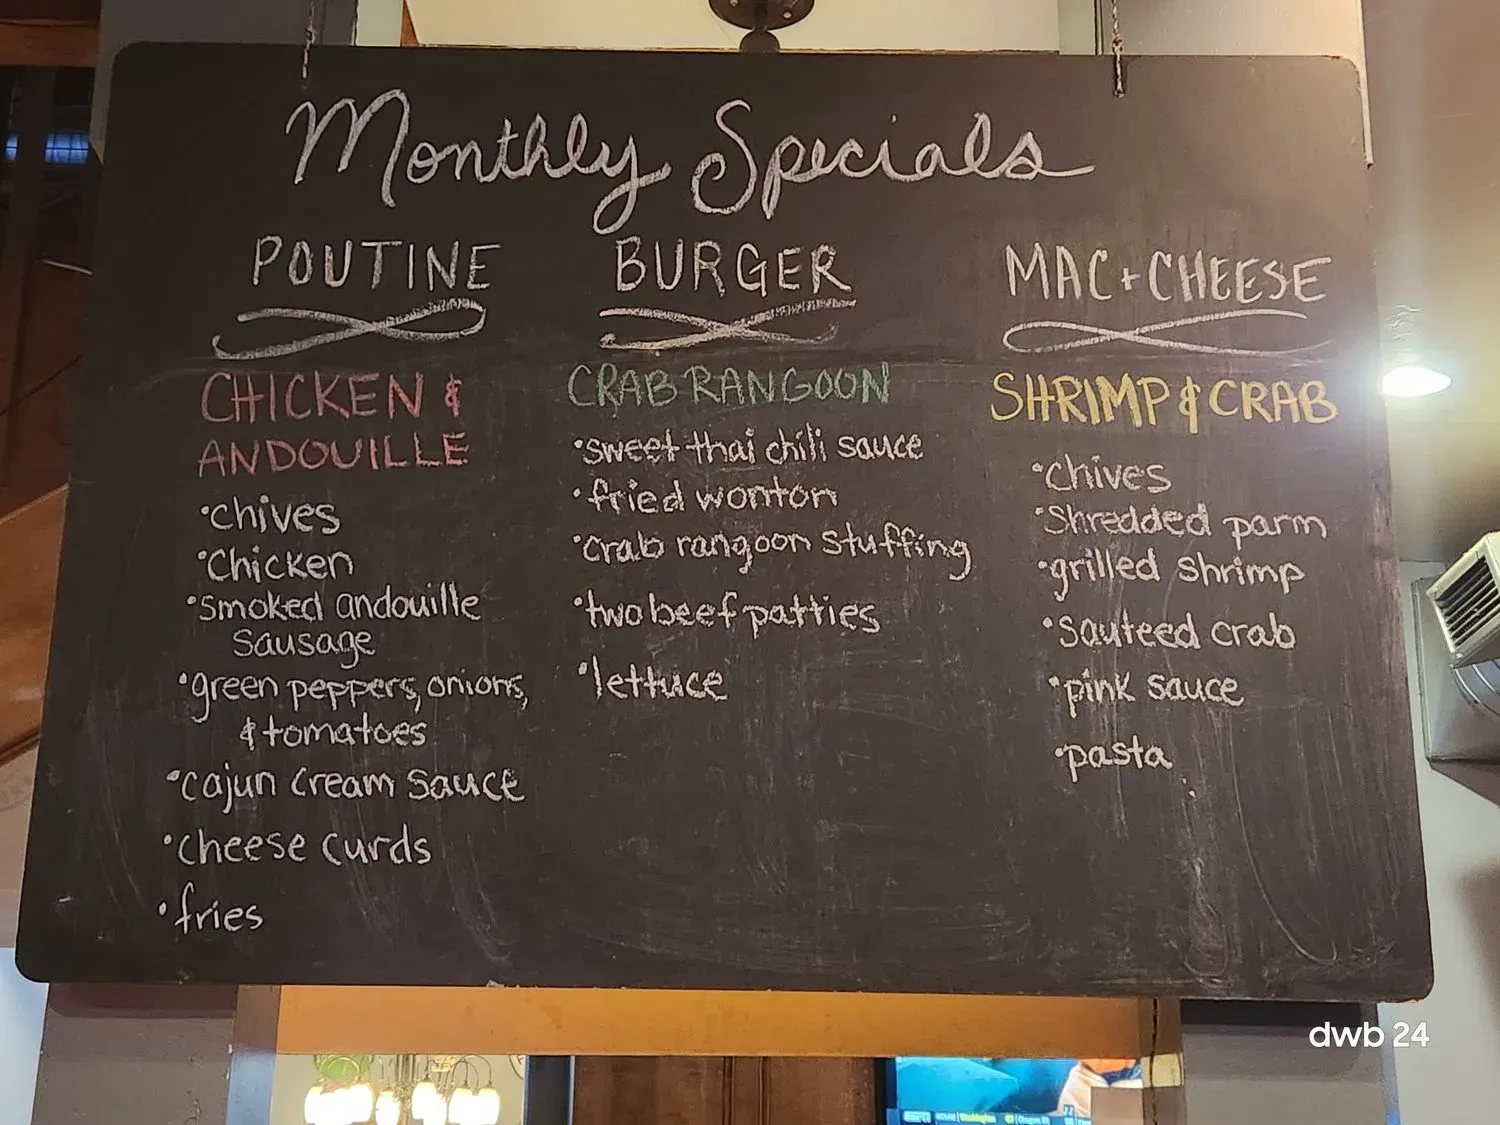 Monthly Specials
POUTINE
CHICKEN &
ANDOUILLE
•chives
•Chicken
•smoked andouille
sausage
•green peppers, onions,
& tomatoes
•cajun cream sauce
•cheese curds
•fries
BURGER
CRAB RANGOON
•sweet thai chili sauce
•fried wonton
•crab rangoon stuffing
•two beef patties
•lettuce
MAC + CHEESE
SHRIMP & CRAB
•chives
•Shredded parm
•grilled shrimp
•sauteed crab
•pink sauce
•pasta
dwb 24
ESPN
Washington